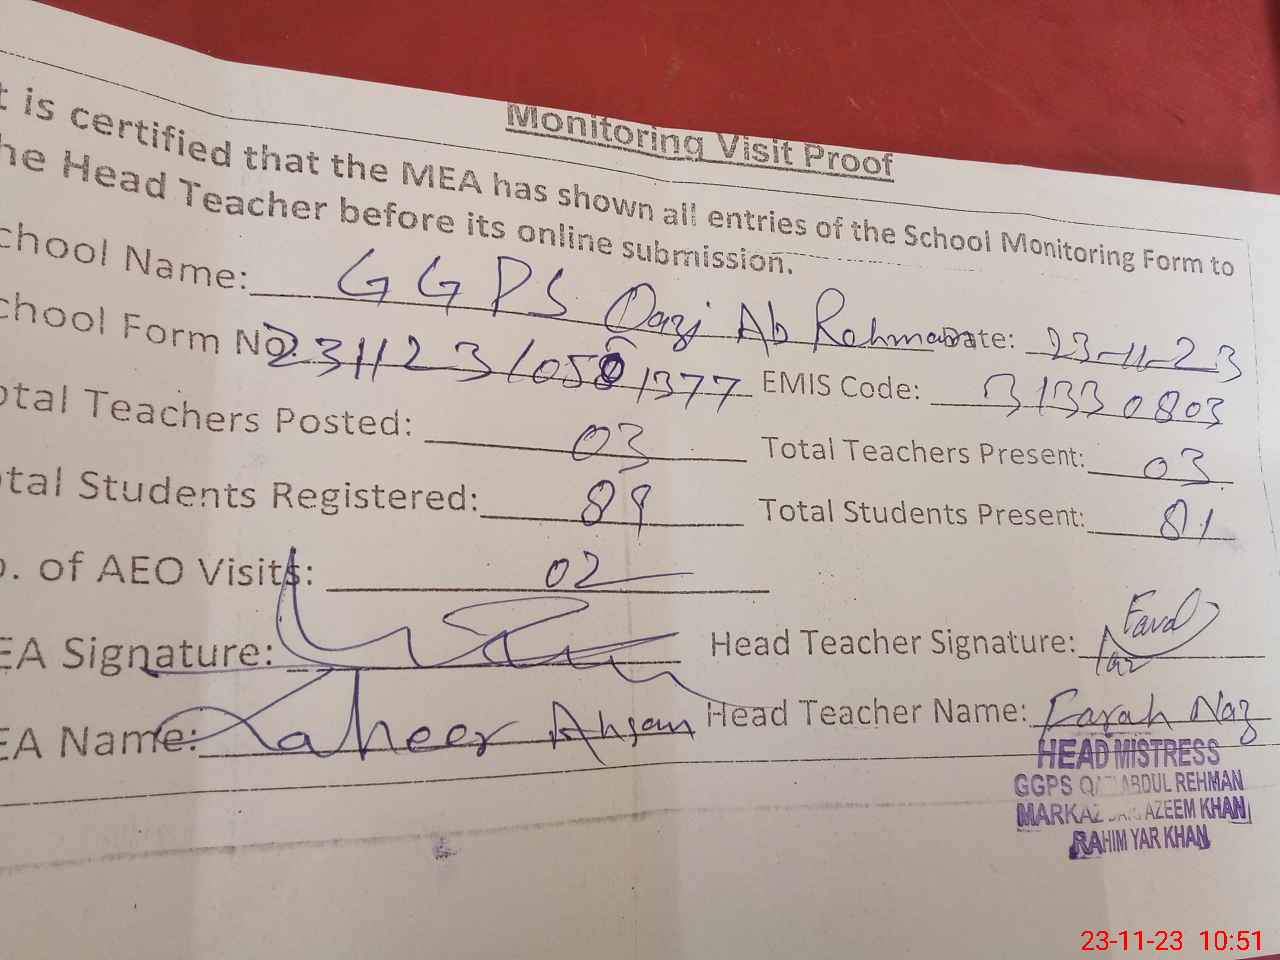 Monitoring Visit Proof
t is certified that the MEA has shown all entries of the School Monitoring Form to
he Head Teacher before its online submission.
chool Name: GGPS Qazi Ab Rehman Date: 23-11-23
chool Form No. EMIS Code: 31330803
otal Teachers Posted: 03 Total Teachers Present: 03
tal Students Registered: 89 Total Students Present: 81
o. of AEO Visits: 02
EA Signature: Head Teacher Signature:
EA Name: Zaheer Ahsan Head Teacher Name: Farah Naz
HEAD MISTRESS
GGPS ABDUL REHMAN
MARKAZ AZEEM KHAN
RAHIM YAR KHAN
23-11-23 10:51